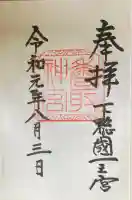 奉拝 下総國一之宮
香取
神宮
令和元年八月三日